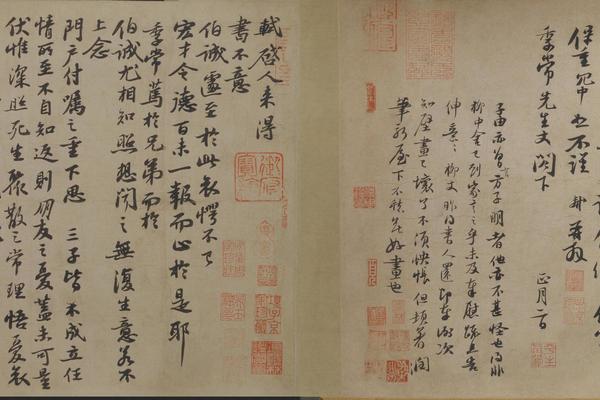 保重冗中恕不謹 軾再拜
季常先生丈閣下
正月二日
子由亦曾言方子明者他亦不甚怪也得非
柳中舍已到家言之乎未及奉慰疏且告
伸意〻柳丈昨得書人還即奉謝次
知壁畫已壞了不須怏悵但頓著潤
筆新屋下不愁無好畫也
軾啓人來得
書不意
伯誠遽至於此哀愕不已
宏才令德百未一報而止於是耶
季常篤於兄弟而於
伯誠尤相知照想聞之無復生意若不
上念
門户付囑之重下思三子皆未成立任
情所至不自知返則朋友之憂蓋未可量
伏惟深照死生聚散之常理悟憂哀